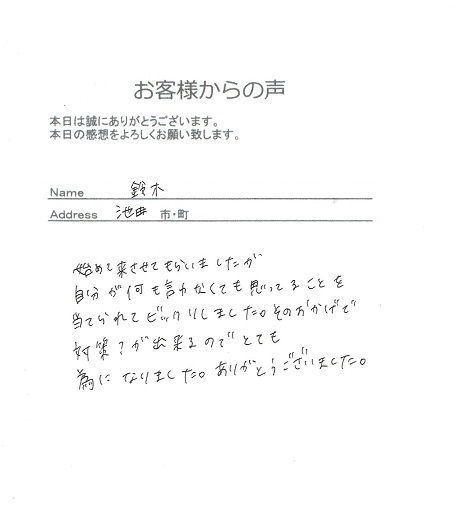 お客様からの声
本日は誠にありがとうございます。
本日の感想をよろしくお願い致します。
Name 鈴木
Address 池田 市・町
始めて来させてもらいましたが
自分が何も言わなくても思ってることを
当てられてビックリしました。そのおかげで
対策？が出来るのでとても
為になりました。ありがとうございました。